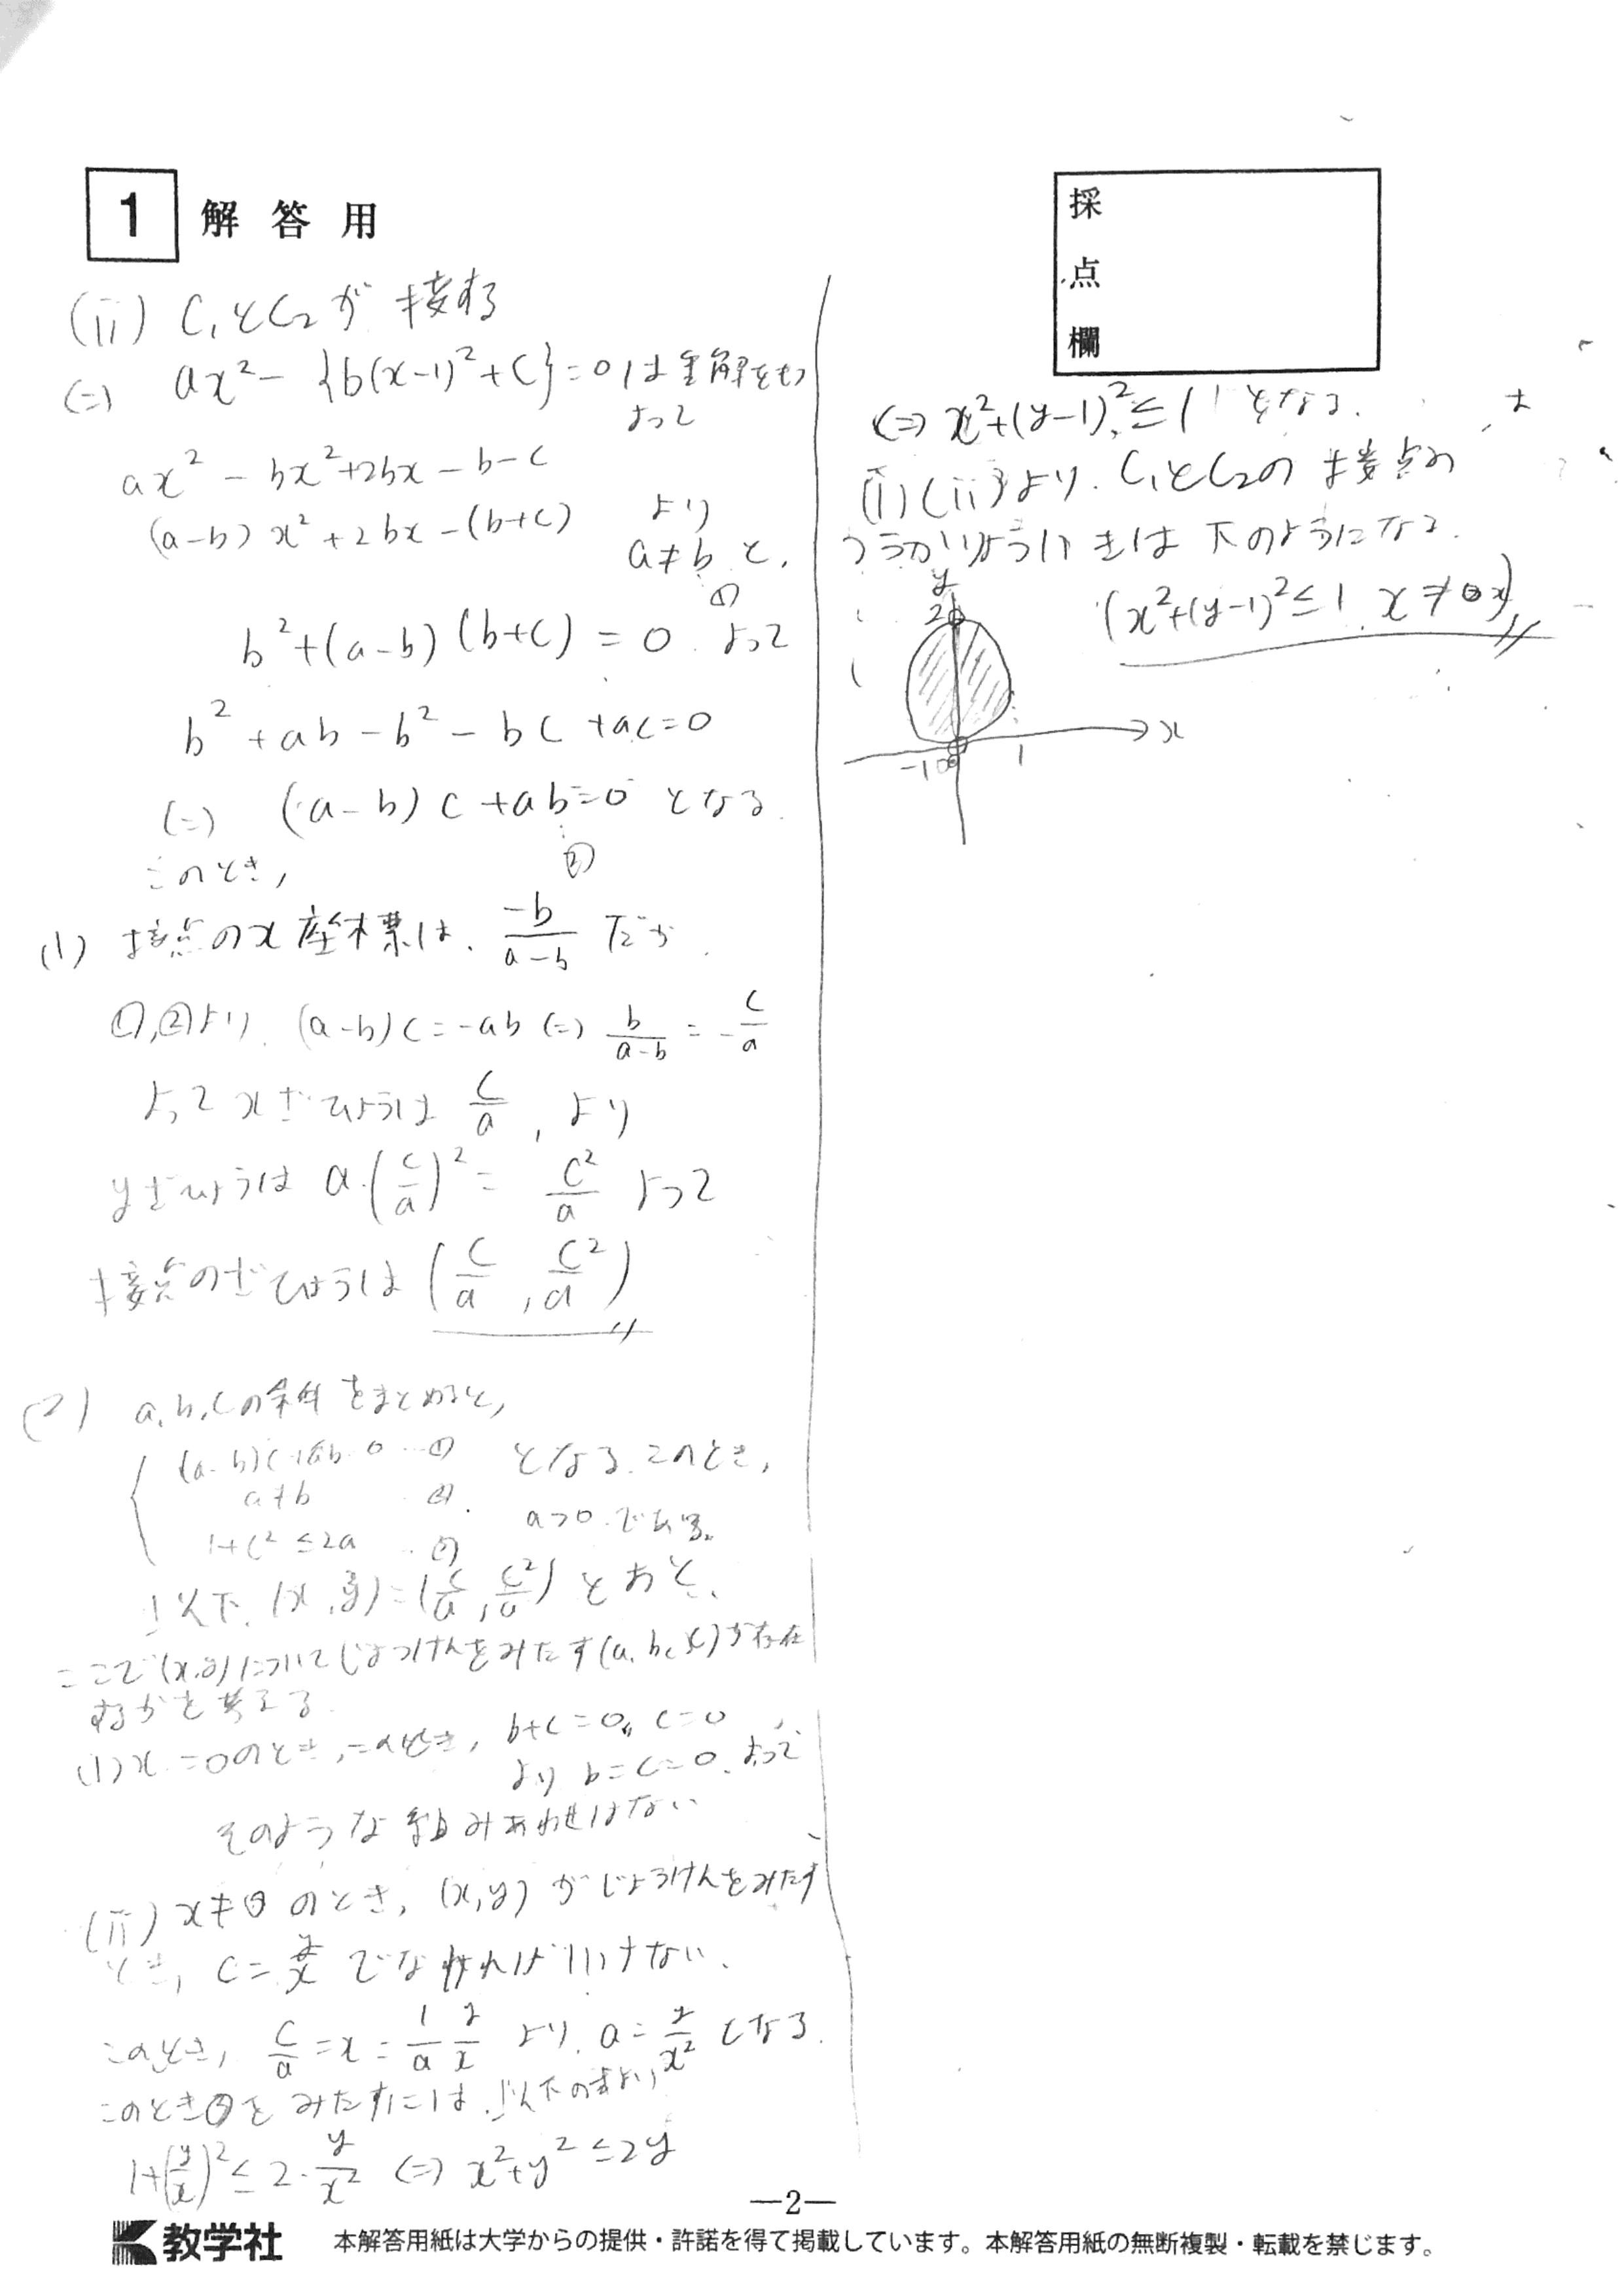 1 解答用
採
点
欄
(ii) C₁とC₂が接する
(=) ax²-{b(x-1)²+c}=0は重解をもつ
よって
ax²-bx²+2bx-b-c
(a-b)x²+2bx-(b+c) より
a≠bと,
①
b²+(a-b)(b+c)=0 よって
b²+ab-b²-bc+ac=0
(=) (a-b)c+ab=0 となる
②
このとき,
(1) 接点のx座標は、-b/(a-b) だが
①,②より. (a-b)c=-ab (=) b/(a-b)=-c/a
よってxざひょうは c/a, より
yざひょうは a・(c/a)²=c²/a よって
接点のざひょうは (c/a, c²/a)
(2) a,b,cの条件をまとめると,
(a-b)c+ab=0 …①
a≠b …②
1+c²≤2a …③
となる.このとき,
a>0.である。
以下.(x,y)=(c/a, c²/a)とおく、
ここで(x,y)についてじょうけんをみたす(a,b,c)が存在
するかを考える
(i)x=0のとき,このとき, b+c=0, c=0
より b=c=0.よって
そのような組みあわせはない
(ii) x≠0のとき,(x,y)がじょうけんをみたす
とき, c=y/x でなければいけない.
このとき, c/a=x=1/a y/x より. a=y/x² となる.
このとき③をみたすには、以下の事より
1+(y/x)²≤2・y/x² (=) x²+y²≤2y
(=) x²+(y-1)²≤1 となる.
(i)(ii)より. C₁とC₂の接点の
つうかりょういきは下のようになる.
(x²+(y-1)²≤1, x≠0)
y
2
x
-1 0 1
—2—
教学社 本解答用紙は大学からの提供・許諾を得て掲載しています。本解答用紙の無断複製・転載を禁じます。